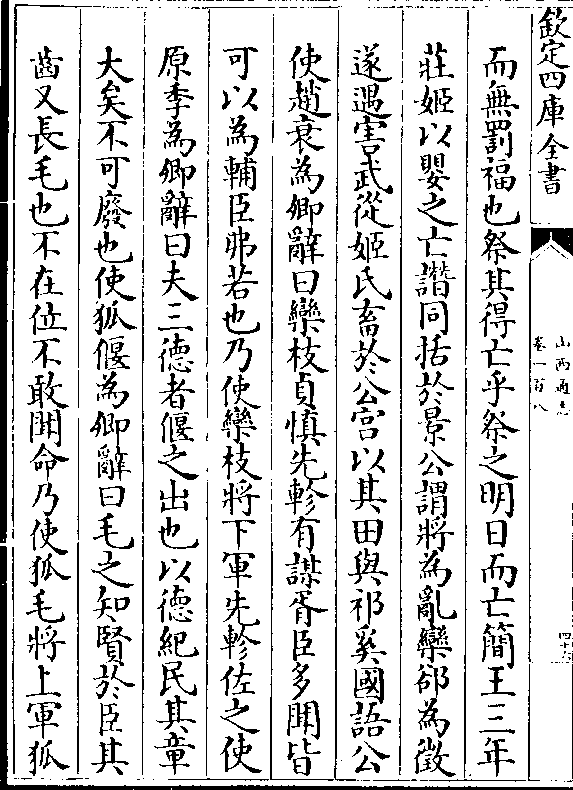 欽定四庫全書
山西通志
卷一百八
而無罰福也祭其得亡乎祭之明日而亡簡王三年
莊姬以嬰之亡譖同括於景公謂將為亂欒郤為徵
遂遇害武從姬氏畜於公宫以其田與祁奚國語公
使趙衰為卿辭曰欒枝貞慎先軫有謀胥臣多聞皆
可以為輔臣弗若也乃使欒枝將下軍先軫佐之使
原季為卿辭曰夫三德者偃之出也以德紀民其章
大矣不可廢也使狐偃為卿辭曰毛之知賢於臣其
齒又長毛也不在位不敢聞命乃使狐毛將上軍狐